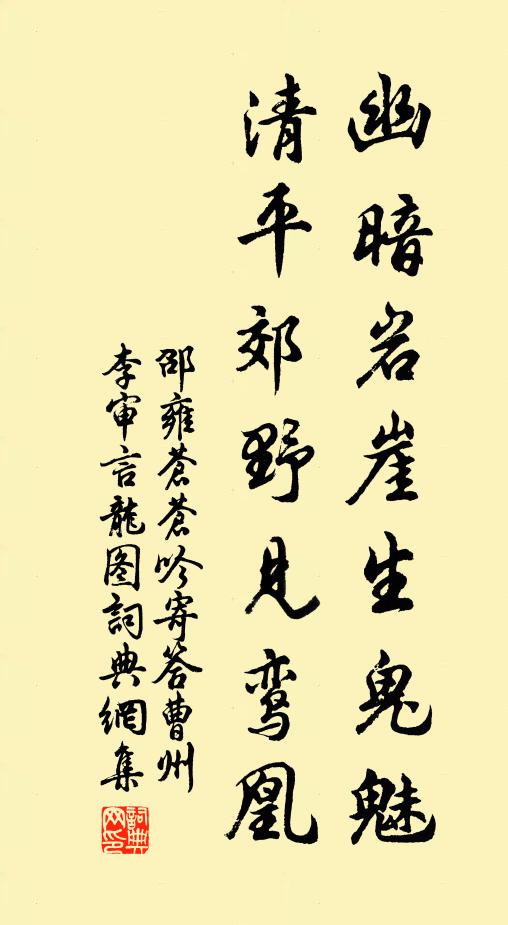 幽暗岩崖生鬼魅
清平郊野见鸾凰
邵雍蒼蒼吟寄答曹州
李审言龍图詞典網集
詞典网印